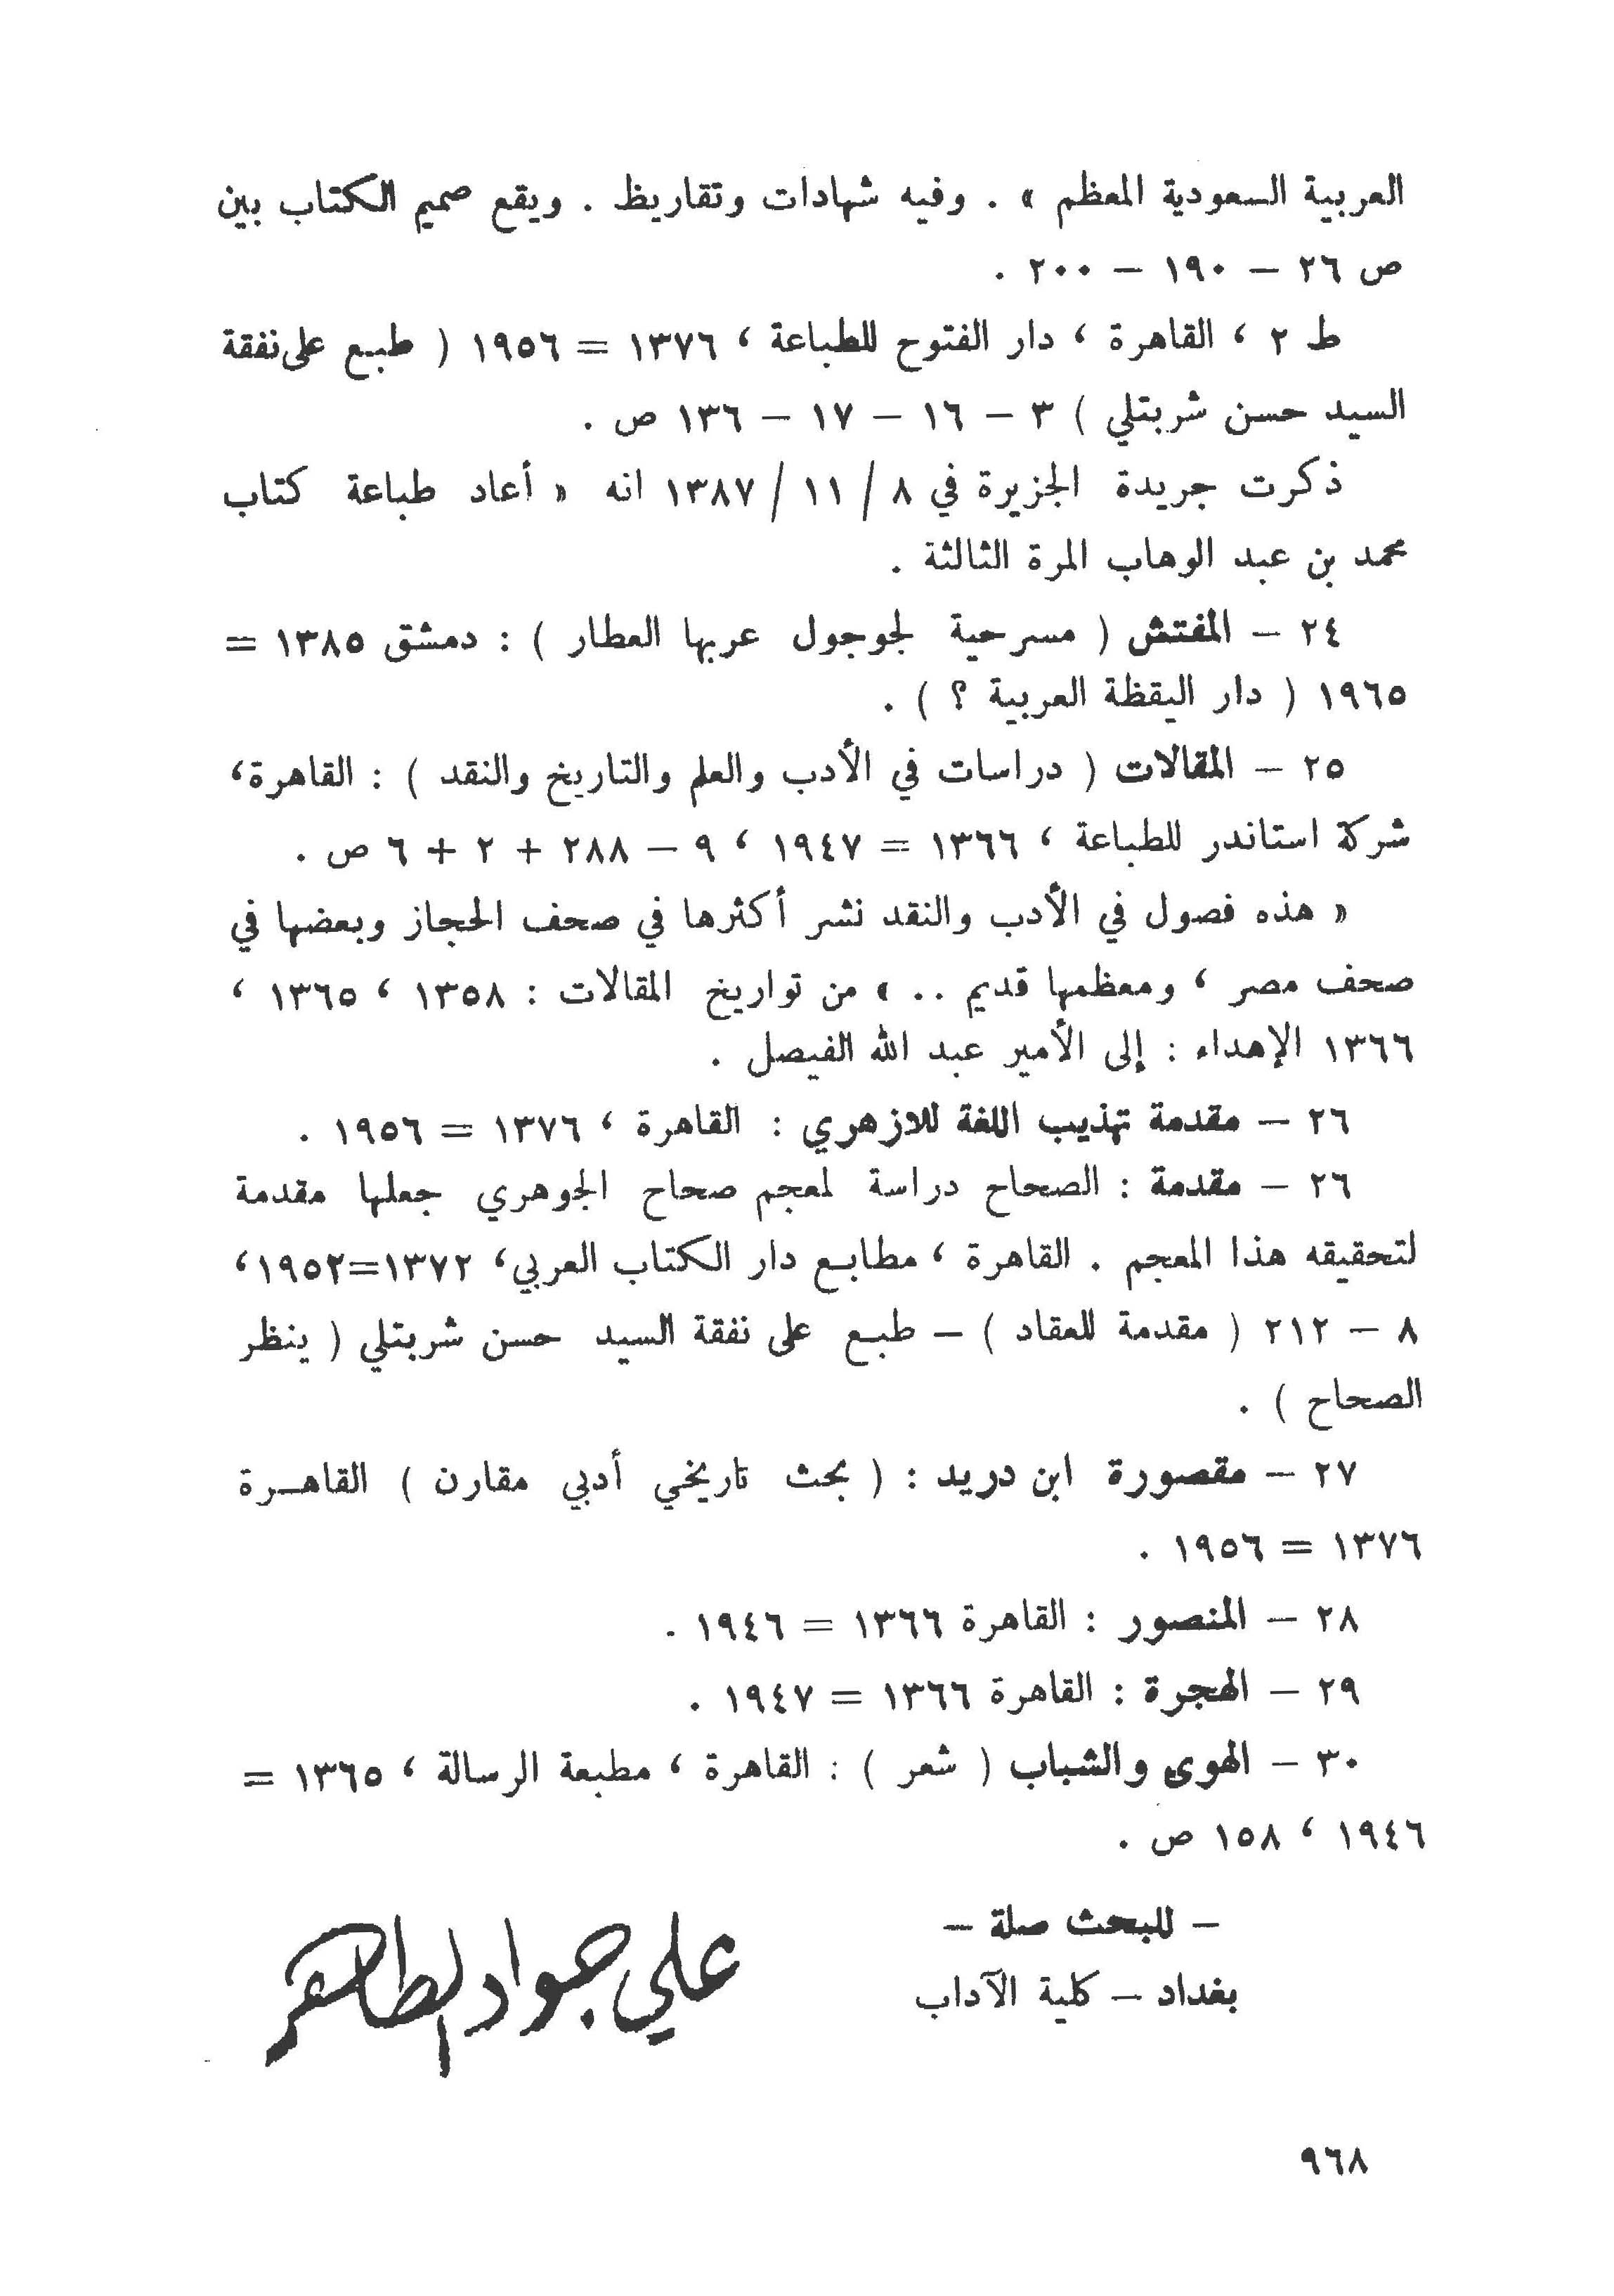 العربية السعودية المعظم » . وفيه شهادات وتقاريظ . ويقع صميم الكتاب بين
ص ٢٦ – ١٩٠ – ٢٠٠ .
ط ٢ ، القاهرة ، دار الفتوح للطباعة ، ١٣٧٦ = ١٩٥٦ ( طبع على نفقة
السيد حسن شربتلي ) ٣ – ١٦ – ١٧ – ١٣٦ ص .
ذكرت جريدة الجزيرة في ٨ / ١١ / ١٣٨٧ انه « أعاد طباعة كتاب
محمد بن عبد الوهاب المرة الثالثة .
٢٤ – المفتش ( مسرحية لجوجول عربها العطار ) : دمشق ١٣٨٥ =
١٩٦٥ ( دار اليقظة العربية ؟ ) .
٢٥ – المقالات ( دراسات في الأدب والعلم والتاريخ والنقد ) : القاهرة،
شركة استاندر للطباعة ، ١٣٦٦ = ١٩٤٧ ، ٩ – ٢٨٨ + ٢ + ٦ ص .
« هذه فصول في الأدب والنقد نشر أكثرها في صحف الحجاز وبعضها في
صحف مصر ، ومعظمها قديم .. » من تواريخ المقالات : ١٣٥٨ ، ١٣٦٥ ،
١٣٦٦ الإهداء : إلى الأمير عبد الله الفيصل .
٢٦ – مقدمة تهذيب اللغة للازهري : القاهرة ، ١٣٧٦ = ١٩٥٦ .
٢٦ – مقدمة : الصحاح دراسة لمعجم صحاح الجوهري جعلها مقدمة
لتحقيقه هذا المعجم . القاهرة ، مطابع دار الكتاب العربي، ١٣٧٢=١٩٥٢،
٨ – ٢١٢ ( مقدمة للعقاد ) – طبع على نفقة السيد حسن شربتلي ( ينظر
الصحاح ) .
٢٧ – مقصورة ابن دريد : ( بحث تاريخي أدبي مقارن ) القاهرة
١٣٧٦ = ١٩٥٦ .
٢٨ – المنصور : القاهرة ١٣٦٦ = ١٩٤٦ .
٢٩ – الهجرة : القاهرة ١٣٦٦ = ١٩٤٧ .
٣٠ – الهوى والشباب ( شعر ) : القاهرة ، مطبعة الرسالة ، ١٣٦٥ =
١٩٤٦ ، ١٥٨ ص .
– للبحث صلة –
بغداد – كلية الآداب
علي جواد الطاهر
٩٦٨